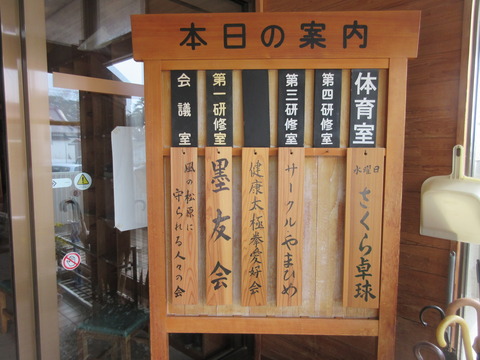 本日の案内
体育室
第四研修室
第三研修室
第一研修室
会議室
水曜日 さくら卓球
サークルやまびめ
健康太極拳愛好会
墨友会
風の松原に
守られる人々の会